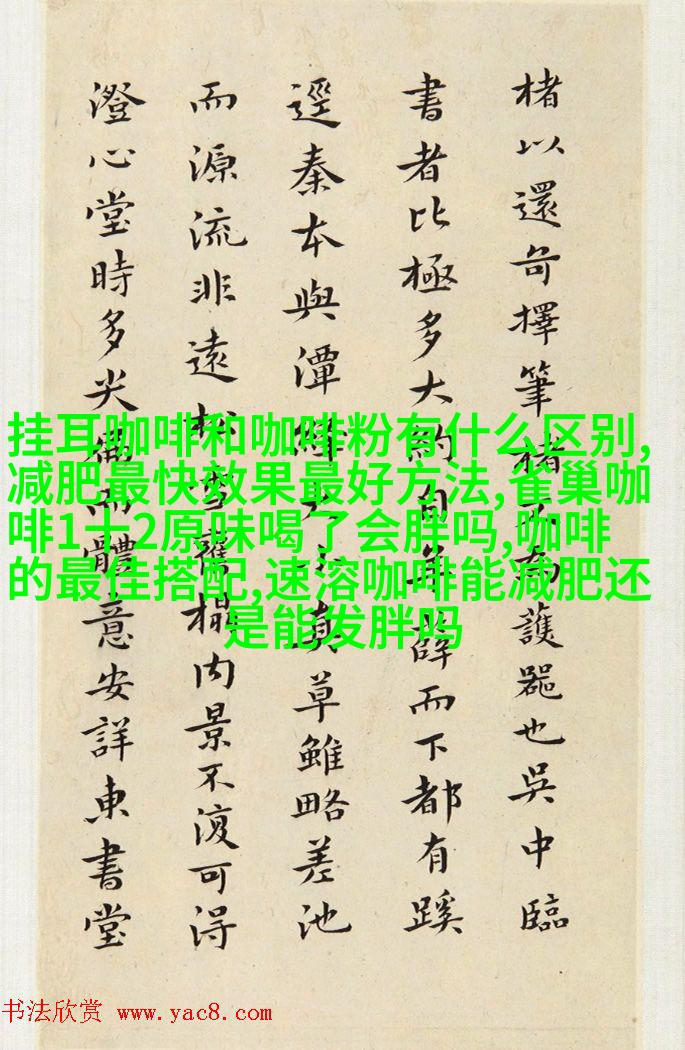 楮以還擇筆楮護器也吳中臨
書者比極多大約自薛而下都有蹊
逕秦本與潭絳真草雖略差池
而源流非遠松雪舊榻内景不復可得
澄心堂時多而體意安詳東書堂
挂耳咖啡和咖啡粉有什么区别,
减肥最快效果最好方法,雀巢咖
啡1十2原味喝了会胖吗,咖啡
的最佳搭配,速溶咖啡能减肥还
是能发胖吗
书法欣赏 www.yac8.com